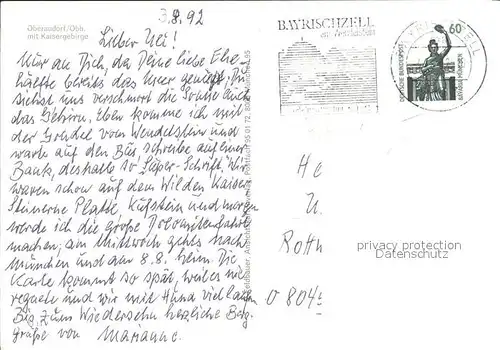 Oberaudorf/Obb.
mit Kaisergebirge
3.8.92
Lieber Uli!
Nur an Dich, da Deine liebe Ehe-
hälfte bereits das Meer genießt. Du
siehst uns verschmort die Sonne auch
das Gehirn. Eben komme ich mit
der Gondel vom Wendelstein und
warte auf den Bus, schreibe auf einer
Bank, deshalb so Super-Schrift. Wir
waren schon auf dem Wilden Kaiser
Steinerne Platte, Kufstein und morgen
werde ich die große Dolomitenfahrt
machen, am Mittwoch gehts nach
München und am 8.8. heim. Die
Karte kommt so spät, weil es nie
regnete und wir mit Hund viel lagen
Bis zum Wiedersehn herzliche Berg-
grüße von Marianne.
BAYRISCHZELL
am Wendelstein
60
DEUTSCHE BUNDESPOST
He
U.
Roth
D 804
privacy protection
Datenschutz